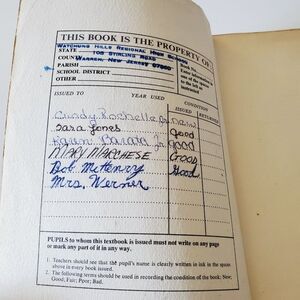 THIS BOOK IS THE PROPERTY OF:
WATCHUNG HILLS REGIONAL HIGH SCHOOL
STATE
108 STIRLING ROAD
COUNTY
WARREN, NEW JERSEY 07060
PARISH
SCHOOL DISTRICT
OTHER
Book No.
Enter information
in spaces
to the left as
instructed
ISSUED TO YEAR USED CONDITION
ISSUED RETURNED
Cindy Rochelle new
Sara Jones Good
Karen Barata Jr. good
MARY MARCHESE Good
Bob McHenry Good
Mrs. Werner
PUPILS to whom this textbook is issued must not write on any page
or mark any part of it in any way.
1. Teachers should see that the pupil's name is clearly written in ink in the spaces
above in every book issued.
2. The following terms should be used in recording the condition of the book: New;
Good; Fair; Poor; Bad.